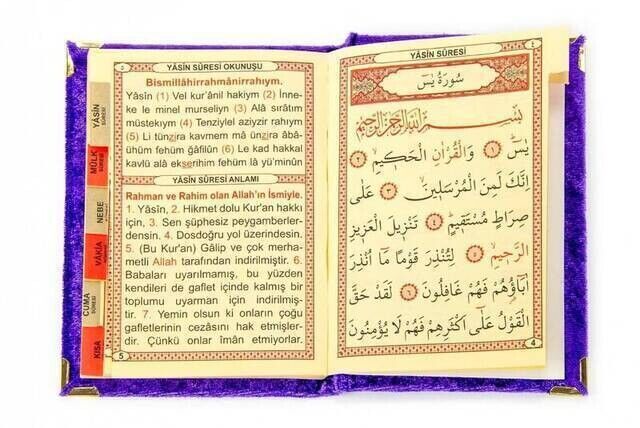 YÂSİN SÛRESİ OKUNUŞU
Bismillâhirrahmânirrahıym.
Yâsîn (1) Vel kur'ânil hakiym (2) İnne-
ke le minel murseliyn (3) Alâ sırâtım
müstekıym (4) Tenziylel aziyzir rahıym
(5) Li tünzira kavmem mâ ünzira âbâ-
ühüm fehüm ğâfilûn (6) Le kad hakkal
kavlü alâ ekserihim fehüm lâ yü'minûn
YÂSİN SÛRESİ ANLAMI
Rahman ve Rahim olan Allah'ın İsmiyle.
1. Yâsîn, 2. Hikmet dolu Kur'an hakkı
için, 3. Sen şüphesiz peygamberler-
densin. 4. Dosdoğru yol üzerindesin.
5. (Bu Kur'an) Gâlip ve çok merha-
metli Allah tarafından indirilmiştir. 6.
Babaları uyarılmamış, bu yüzden
kendileri de gaflet içinde kalmış bir
toplumu uyarman için indirilmiş-
tir. 7. Yemin olsun ki onların çoğu
gafletlerinin cezasını hak etmişler-
dir. Çünkü onlar îmân etmiyorlar.
5
YÂSİN
SÛRESİ
MÜLK
SÛRESİ
NEBE
VÂKIA
CUMA
SÛRESİ
KISA
YÂSİN SÛRESİ
٤
سُورَةُ يٰسٓ
بِسْمِ اللّٰهِ الرَّحْمٰنِ الرَّحٖيمِ
يٰسٓ ﴿١﴾ وَالْقُرْاٰنِ الْحَكٖيمِ ﴿٢﴾
اِنَّكَ لَمِنَ الْمُرْسَلٖينَ ﴿٣﴾ عَلٰى
صِرَاطٍ مُسْتَقٖيمٍ ﴿٤﴾ تَنْزٖيلَ الْعَزٖيزِ
الرَّحٖيمِ ﴿٥﴾ لِتُنْذِرَ قَوْمًا مَٓا اُنْذِرَ
اٰبَٓاؤُهُمْ فَهُمْ غَافِلُونَ ﴿٦﴾ لَقَدْ حَقَّ
الْقَوْلُ عَلٰٓى اَكْثَرِهِمْ فَهُمْ لَا يُؤْمِنُونَ
4